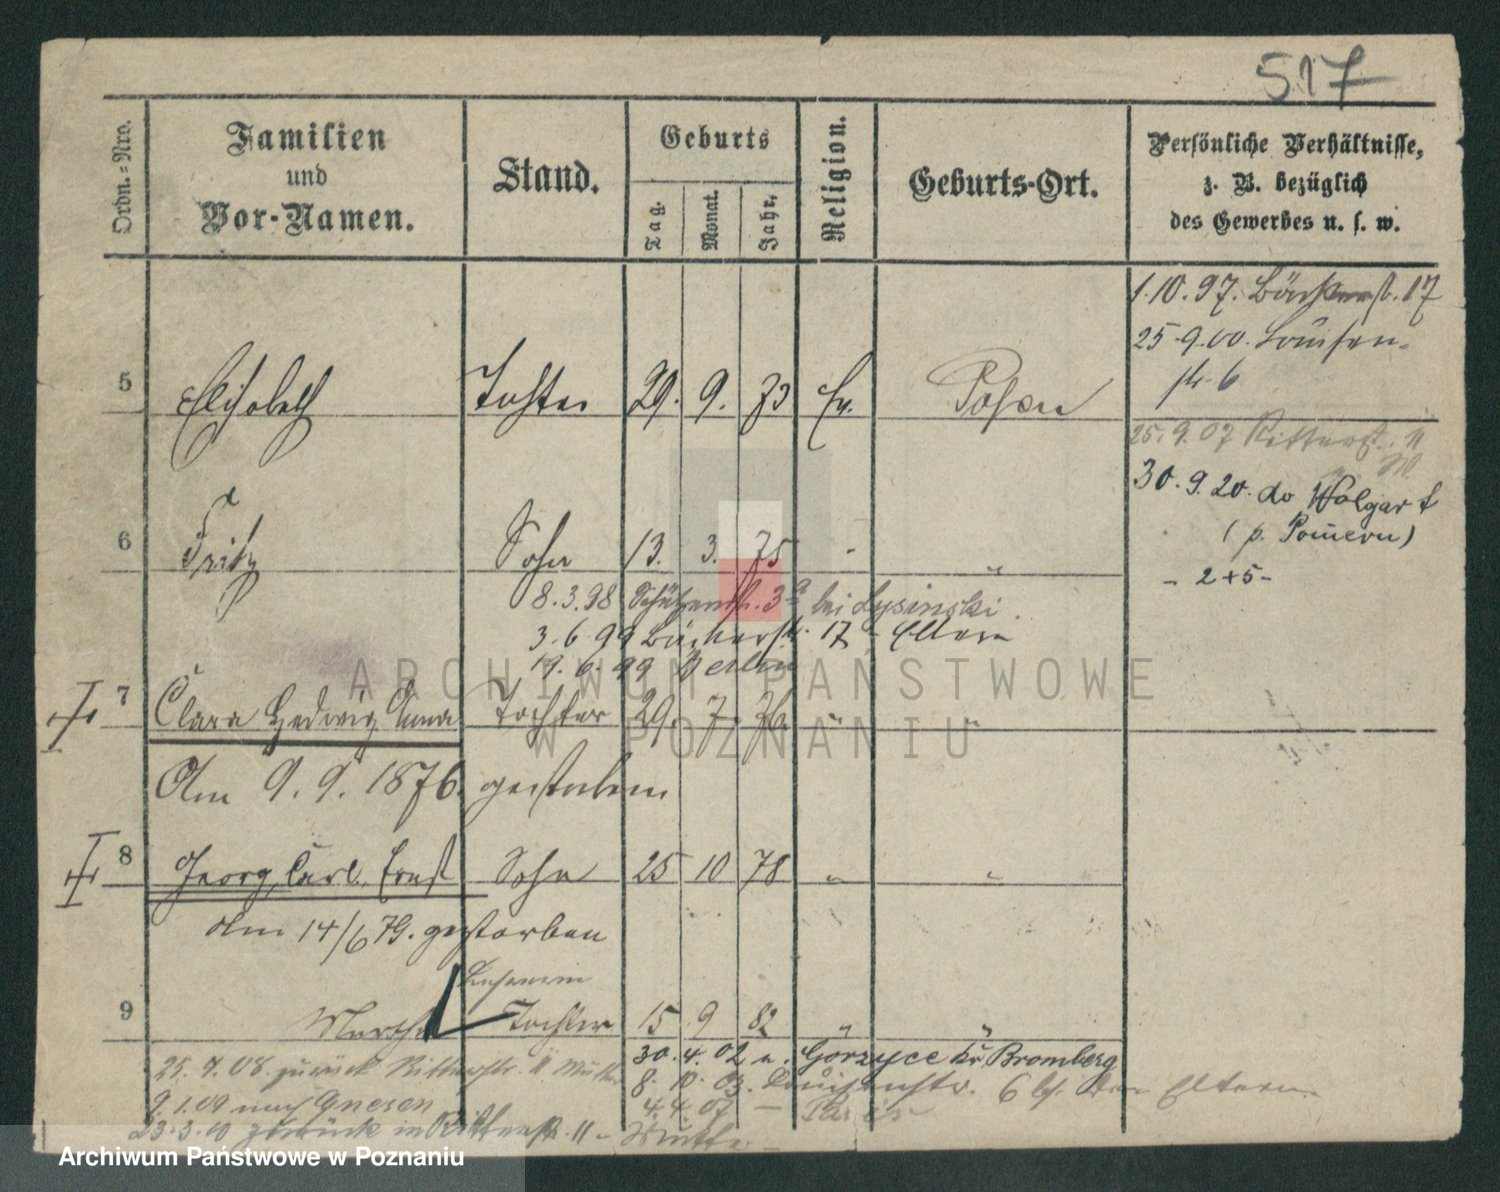 517
Ordn.-Nro.
Familien
und
Vor-Namen.
Stand.
Geburts
Tag.
Monat.
Jahr.
Religion.
Geburts-Ort.
Persönliche Verhältnisse,
z. B. bezüglich
des Gewerbes u. s. w.
1.10.97. Bäckerst. 17
25.9.00. Louisen-
str. 6
5 Elisabeth Tochter 29. 9. 73 Ev. Posen
25.9.07 Ritterst. 11
30.9.20. do Wolgast
(p. Pomern)
- 2+5-
6 Fritz Sohn 13. 3. 75 " "
8.3.98 Schützenstr. 3a bei Lysinski.
3.6.99 Bäckerstr. 17 - Eltern
19.6.99 Berlin
7 Clara Hedwig Anna Tochter 29. 7. 76. " "
Am 9.9.1876. gestorben
8 Georg, Carl, Ernst Sohn 25 10 78 " "
am 14/6 79. gestorben
Lehrerin
9 Martha Tochter 15 9 82 " "
30.4.02 n. Gorzyce Kr. Bromberg
25.7.08. zurück Ritterstr. 11 Mutter
8.10.03. Louisenstr. 6 bei den Eltern
4.4.07 - Paris
9.1.09 nach Gnesen
23.3.10 zurück in Ritterstr. 11 - Mutter
ARCHIWUM PAŃSTWOWE
W POZNANIU
Archiwum Państwowe w Poznaniu